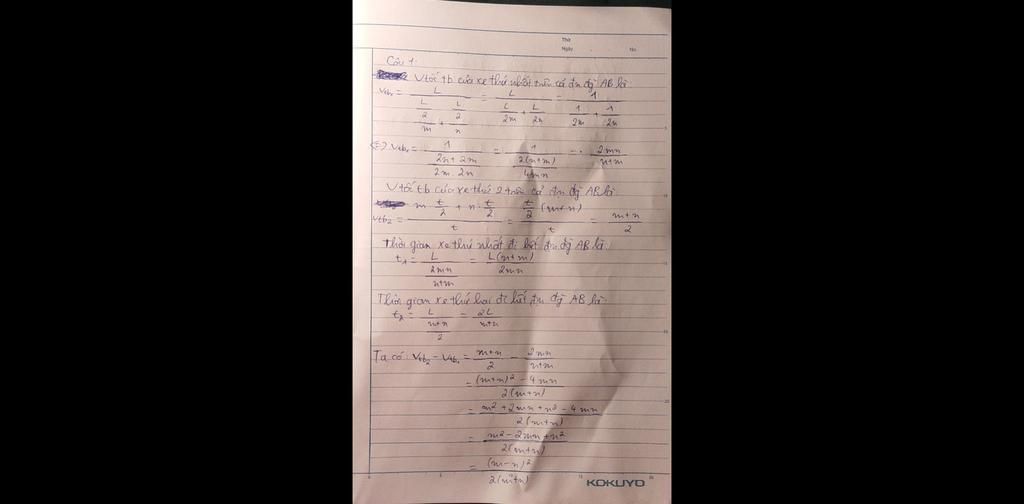 Thứ
Ngày No.
Câu 1:
Vtốc tb của xe thứ nhất trên cả đn đg AB là:
Vtb₁ = L / ((L/2)/m + (L/2)/n) = L / (L/2m + L/2n) = 1 / (1/2m + 1/2n)
(=) Vtb₁ = 1 / ((2n + 2m)/(2m . 2n)) = 1 / (2(n+m)/4mn) = 2mn/(n+m)
Vtốc tb của xe thứ 2 trên cả đn đg AB là:
Vtb₂ = (m . t/2 + n . t/2) / t = (t/2 (m+n)) / t = (m+n)/2
Thời gian xe thứ nhất đi hết đn đg AB là:
t₁ = L / (2mn/(n+m)) = L(n+m)/2mn
Thời gian xe thứ hai đi hết đn đg AB là:
t₂ = L / ((m+n)/2) = 2L/(m+n)
Ta có: Vtb₂ - Vtb₁ = (m+n)/2 - 2mn/(n+m)
= ((m+n)² - 4mn) / 2(m+n)
= (m² + 2mn + n² - 4mn) / 2(m+n)
= (m² - 2mn + n²) / 2(m+n)
= (m-n)² / 2(m+n)
KOKUYO